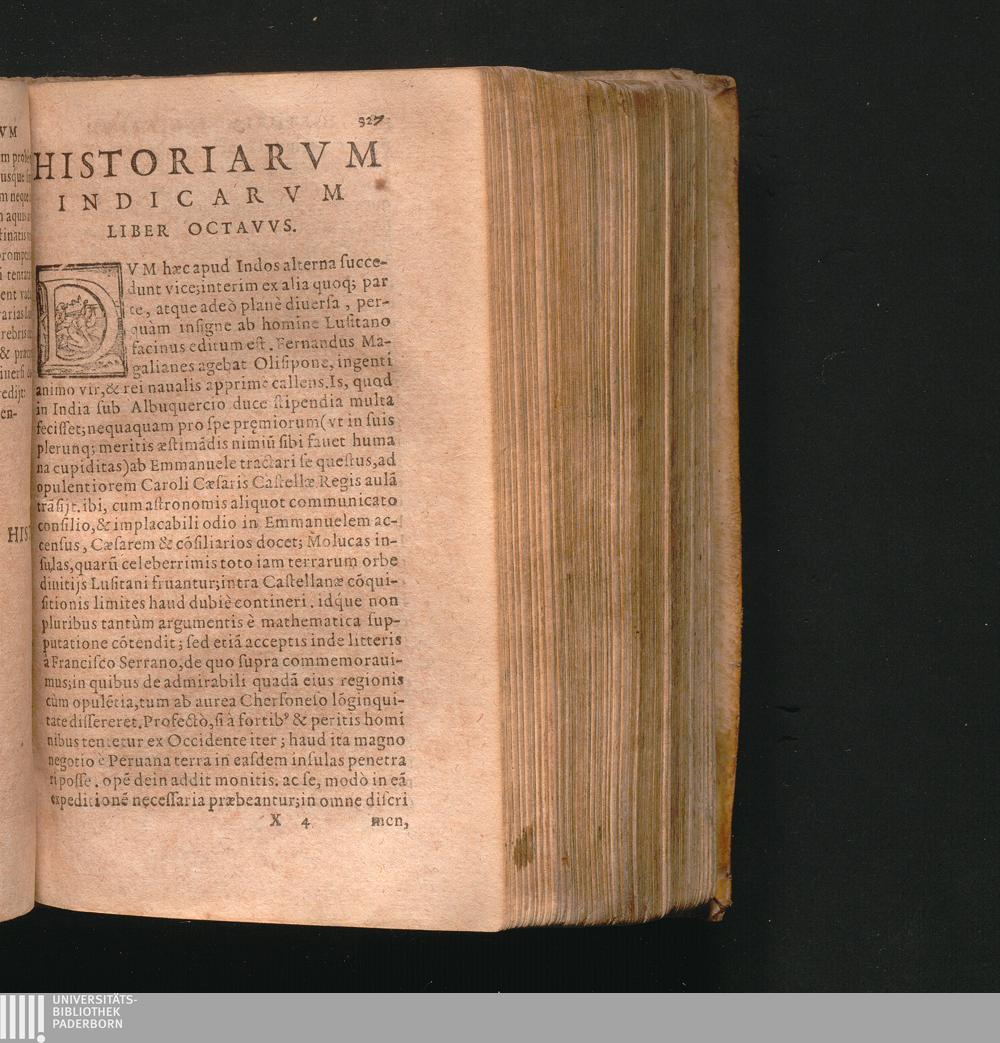 VM
usque
m neque
HIS
en-
327
HISTORIARVM
INDICARVM
LIBER OCTAVVS.
DVM hæc apud Indos alterna succe-
dunt vice; interim ex alia quoq; par
te, atque adeò planè diuersa, per-
quàm insigne ab homine Lusitano
facinus editum est. Fernandus Ma-
galianes agebat Olisipone, ingenti
animo vir, & rei naualis apprimè callens. Is, quod
in India sub Albuquercio duce stipendia multa
fecisset; nequaquam pro spe pręmiorum (vt in suis
plerunq; meritis æstimãdis nimiũ sibi fauet huma
na cupiditas) ab Emmanuele tractari se questus, ad
opulentiorem Caroli Cæsaris Castellæ Regis aulã
trãsijt. ibi, cum astronomis aliquot communicato
consilio, & implacabili odio in Emmanuelem ac-
census, Cæsarem & cõsiliarios docet; Molucas in-
sulas, quarũ celeberrimis toto iam terrarum orbe
diuitijs Lusitani fruantur; intra Castellanæ cõqui-
sitionis limites haud dubiè contineri. idq́ue non
pluribus tantùm argumentis è mathematica sup-
putatione cõtendit; sed etiã acceptis inde litteris
à Francisco Serrano, de quo supra commemoraui-
mus; in quibus de admirabili quadã eius regionis
cùm opulẽtia, tum ab aurea Chersoneso lõginqui-
tate dissereret. Profectò, si à fortibꝰ & peritis homi
nibus tentetur ex Occidente iter; haud ita magno
negotio è Peruana terra in easdem insulas penetra
ri posse. opẽ dein addit monitis. ac se, modò in eã
expeditionẽ necessaria præbeantur; in omne discri
X 4 men,
UNIVERSITÄTS-
BIBLIOTHEK
PADERBORN